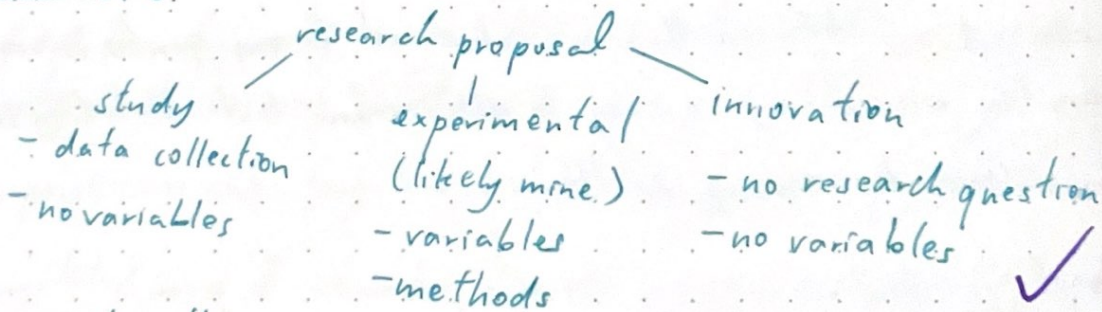 research proposal
study
- data collection
- no variables
experimental
(likely mine)
- variables
- methods
innovation
- no research question
- no variables